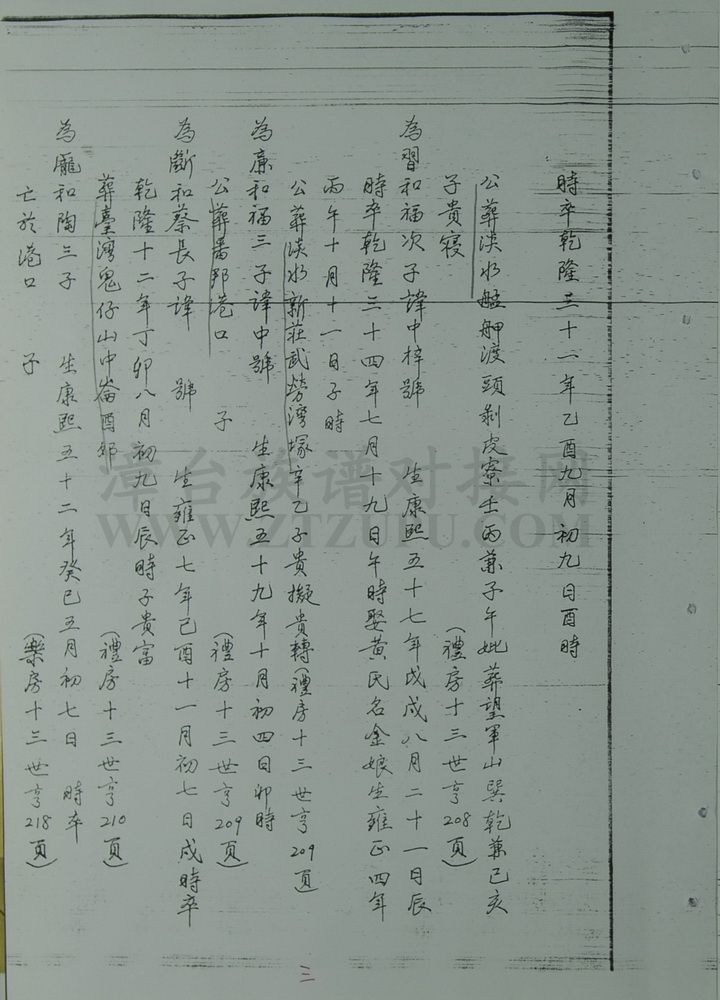 時卒乾隆三十一年乙酉九月初九日酉時
公葬淡水艋舺渡頭剥皮寮壬丙兼子午妣葬望軍山巽乾兼巳亥
子貴寝 (禮房十三世亨208頁)
為習和福次子諱中梓號 生康熙五十七年戊戌八月二十一日辰
時卒乾隆三十四年七月十九日午時娶黄氏名金娘生雍正四年
丙午十月十一日子時
公葬淡水新莊武勞灣塚辛乙子貴擬貴轉(禮房十三世亨209頁
為廉和福三子諱中號 生康熙五十九年十月初四日卯時
公葬番邦港口 子 (禮房十三世亨209頁)
為斷和蔡長子諱 號 生雍正七年己酉十一月初七日戌時卒
乾隆十二年丁卯八月初九日辰時子貴富
葬臺灣鬼仔山中崙酉卯 (禮房十三世亨210頁)
為龐和陶三子 生康熙五十二年癸巳五月初七日 時卒
亡於港口 子 (樂房十三世亨218頁)
三
漳台族谱对接网
WWW.ZTZUPU.COM